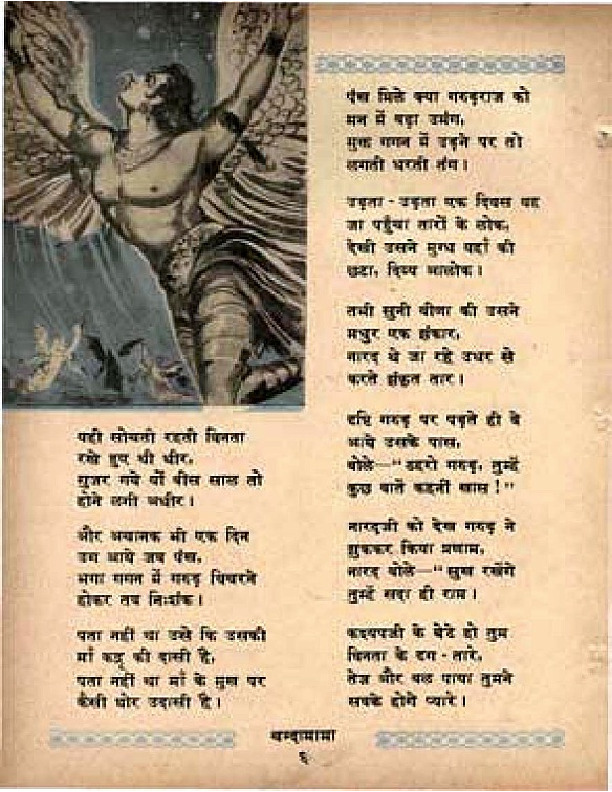 यही सोचती रहती विनता
रखे हुए थी धीर,
गुज़र गये यों बीस साल तो
होने लगी अधीर।
और अचानक भी एक दिन
उग आये जब पंख,
भगा गगन में गरुड़ विचरने
होकर तब निःशंक।
पता नहीं था उसे कि उसकी
माँ कद्रू की दासी है,
पता नहीं था माँ के मुख पर
कैसी घोर उदासी है।
पंख मिले क्या गरुड़राज को
मन में बढ़ा उमंग,
मुक्त गगन में उड़ने पर तो
लगती धरती तंग।
उड़ता-उड़ता एक दिवस वह
जा पहुँचा तारों के लोक,
देखी उसने मुग्ध वहाँ की
छटा, दिव्य आलोक।
तभी सुनी वीणा की उसने
मधुर एक झंकार,
नारद थे जा रहे उधर से
करते झंकृत तार।
दृष्टि गरुड़ पर पड़ते ही वे
आये उसके पास,
बोले—"ठहरो गरुड़, तुम्हें
कुछ बातें कहनीं खास!"
नारदजी को देख गरुड़ ने
झुककर किया प्रणाम,
नारद बोले—"सुख रखेंगे
तुम्हें सदा ही राम।
कश्यपजी के बेटे हो तुम
विनता के दृग-तारे,
तेज और बल पाया तुमने
सबके होगे प्यारे।
चन्दामामा
६